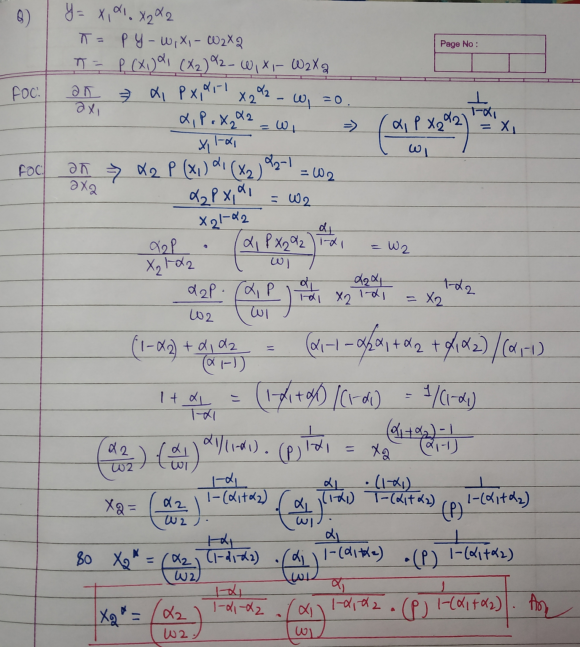 Q) y = x₁^α₁ · x₂^α₂
π = Py - ω₁x₁ - ω₂x₂
Page No :
π = P(x₁)^α₁ (x₂)^α₂ - ω₁x₁ - ω₂x₂
FOC: ∂π/∂x₁ ⇒ α₁ P x₁^(α₁-1) x₂^α₂ - ω₁ = 0.
(α₁P · x₂^α₂)/(x₁^(1-α₁)) = ω₁ ⇒ (α₁ P x₂^α₂/ω₁)^(1/(1-α₁)) = x₁
FOC ∂π/∂x₂ ⇒ α₂ P (x₁)^α₁ (x₂)^(α₂-1) = ω₂
(α₂P x₁^α₁)/(x₂^(1-α₂)) = ω₂
(α₂P)/(x₂^(1-α₂)) · (α₁ P x₂^α₂/ω₁)^(α₁/(1-α₁)) = ω₂
(α₂P/ω₂) · (α₁P/ω₁)^(α₁/(1-α₁)) x₂^(α₂α₁/(1-α₁)) = x₂^(1-α₂)
(1-α₂) + (α₁α₂)/(α₁-1) = (α₁-1-α₂α₁+α₂+α₁α₂)/(α₁-1)
1 + α₁/(1-α₁) = (1-α₁+α₁)/(1-α₁) = 1/(1-α₁)
(α₂/ω₂) · (α₁/ω₁)^(α₁/(1-α₁)) · (P)^(1/(1-α₁)) = x₂^(((α₁+α₂)-1)/(α₁-1))
x₂ = (α₂/ω₂)^((1-α₁)/(1-(α₁+α₂))) · (α₁/ω₁)^(α₁/(1-α₁) · (1-α₁)/(1-(α₁+α₂))) (P)^(1/(1-(α₁+α₂)))
So x₂* = (α₂/ω₂)^((1-α₁)/(1-α₁-α₂)) · (α₁/ω₁)^(α₁/(1-(α₁+α₂))) · (P)^(1/(1-(α₁+α₂)))
x₂* = (α₂/ω₂)^((1-α₁)/(1-α₁-α₂)) · (α₁/ω₁)^(α₁/(1-α₁-α₂)) · (P)^(1/(1-(α₁+α₂))) . Ans